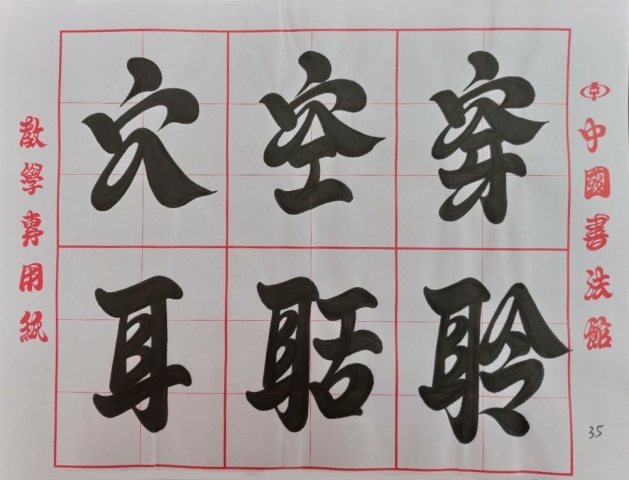 穴空穿
耳聒聆
教學專用紙
中國書法館
35